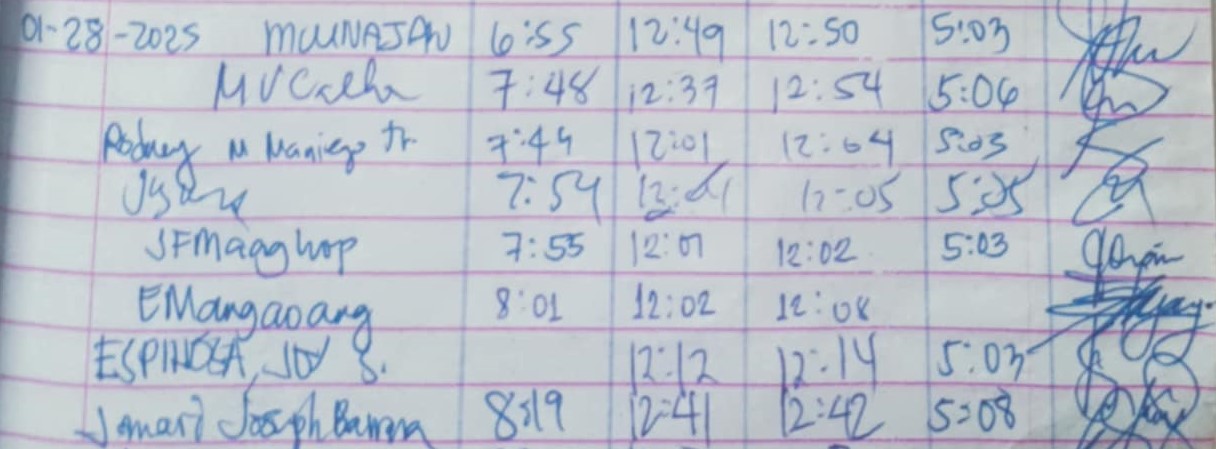 01-28-2025 MUUNAJAN 6:55 12:49 12:50 5:03
MVCalha 7:48 12:37 12:54 5:06
Rodney M Maniego Jr. 7:44 12:01 12:04 5:03
7:54 12:01 12:05 5:05
JFMaaghop 7:55 12:01 12:02 5:03
EMangaoang 8:01 12:02 12:08
ESPINOSA, JOY S. 12:12 12:14 5:03
Jomari Joseph 8:19 12:41 12:42 5:08